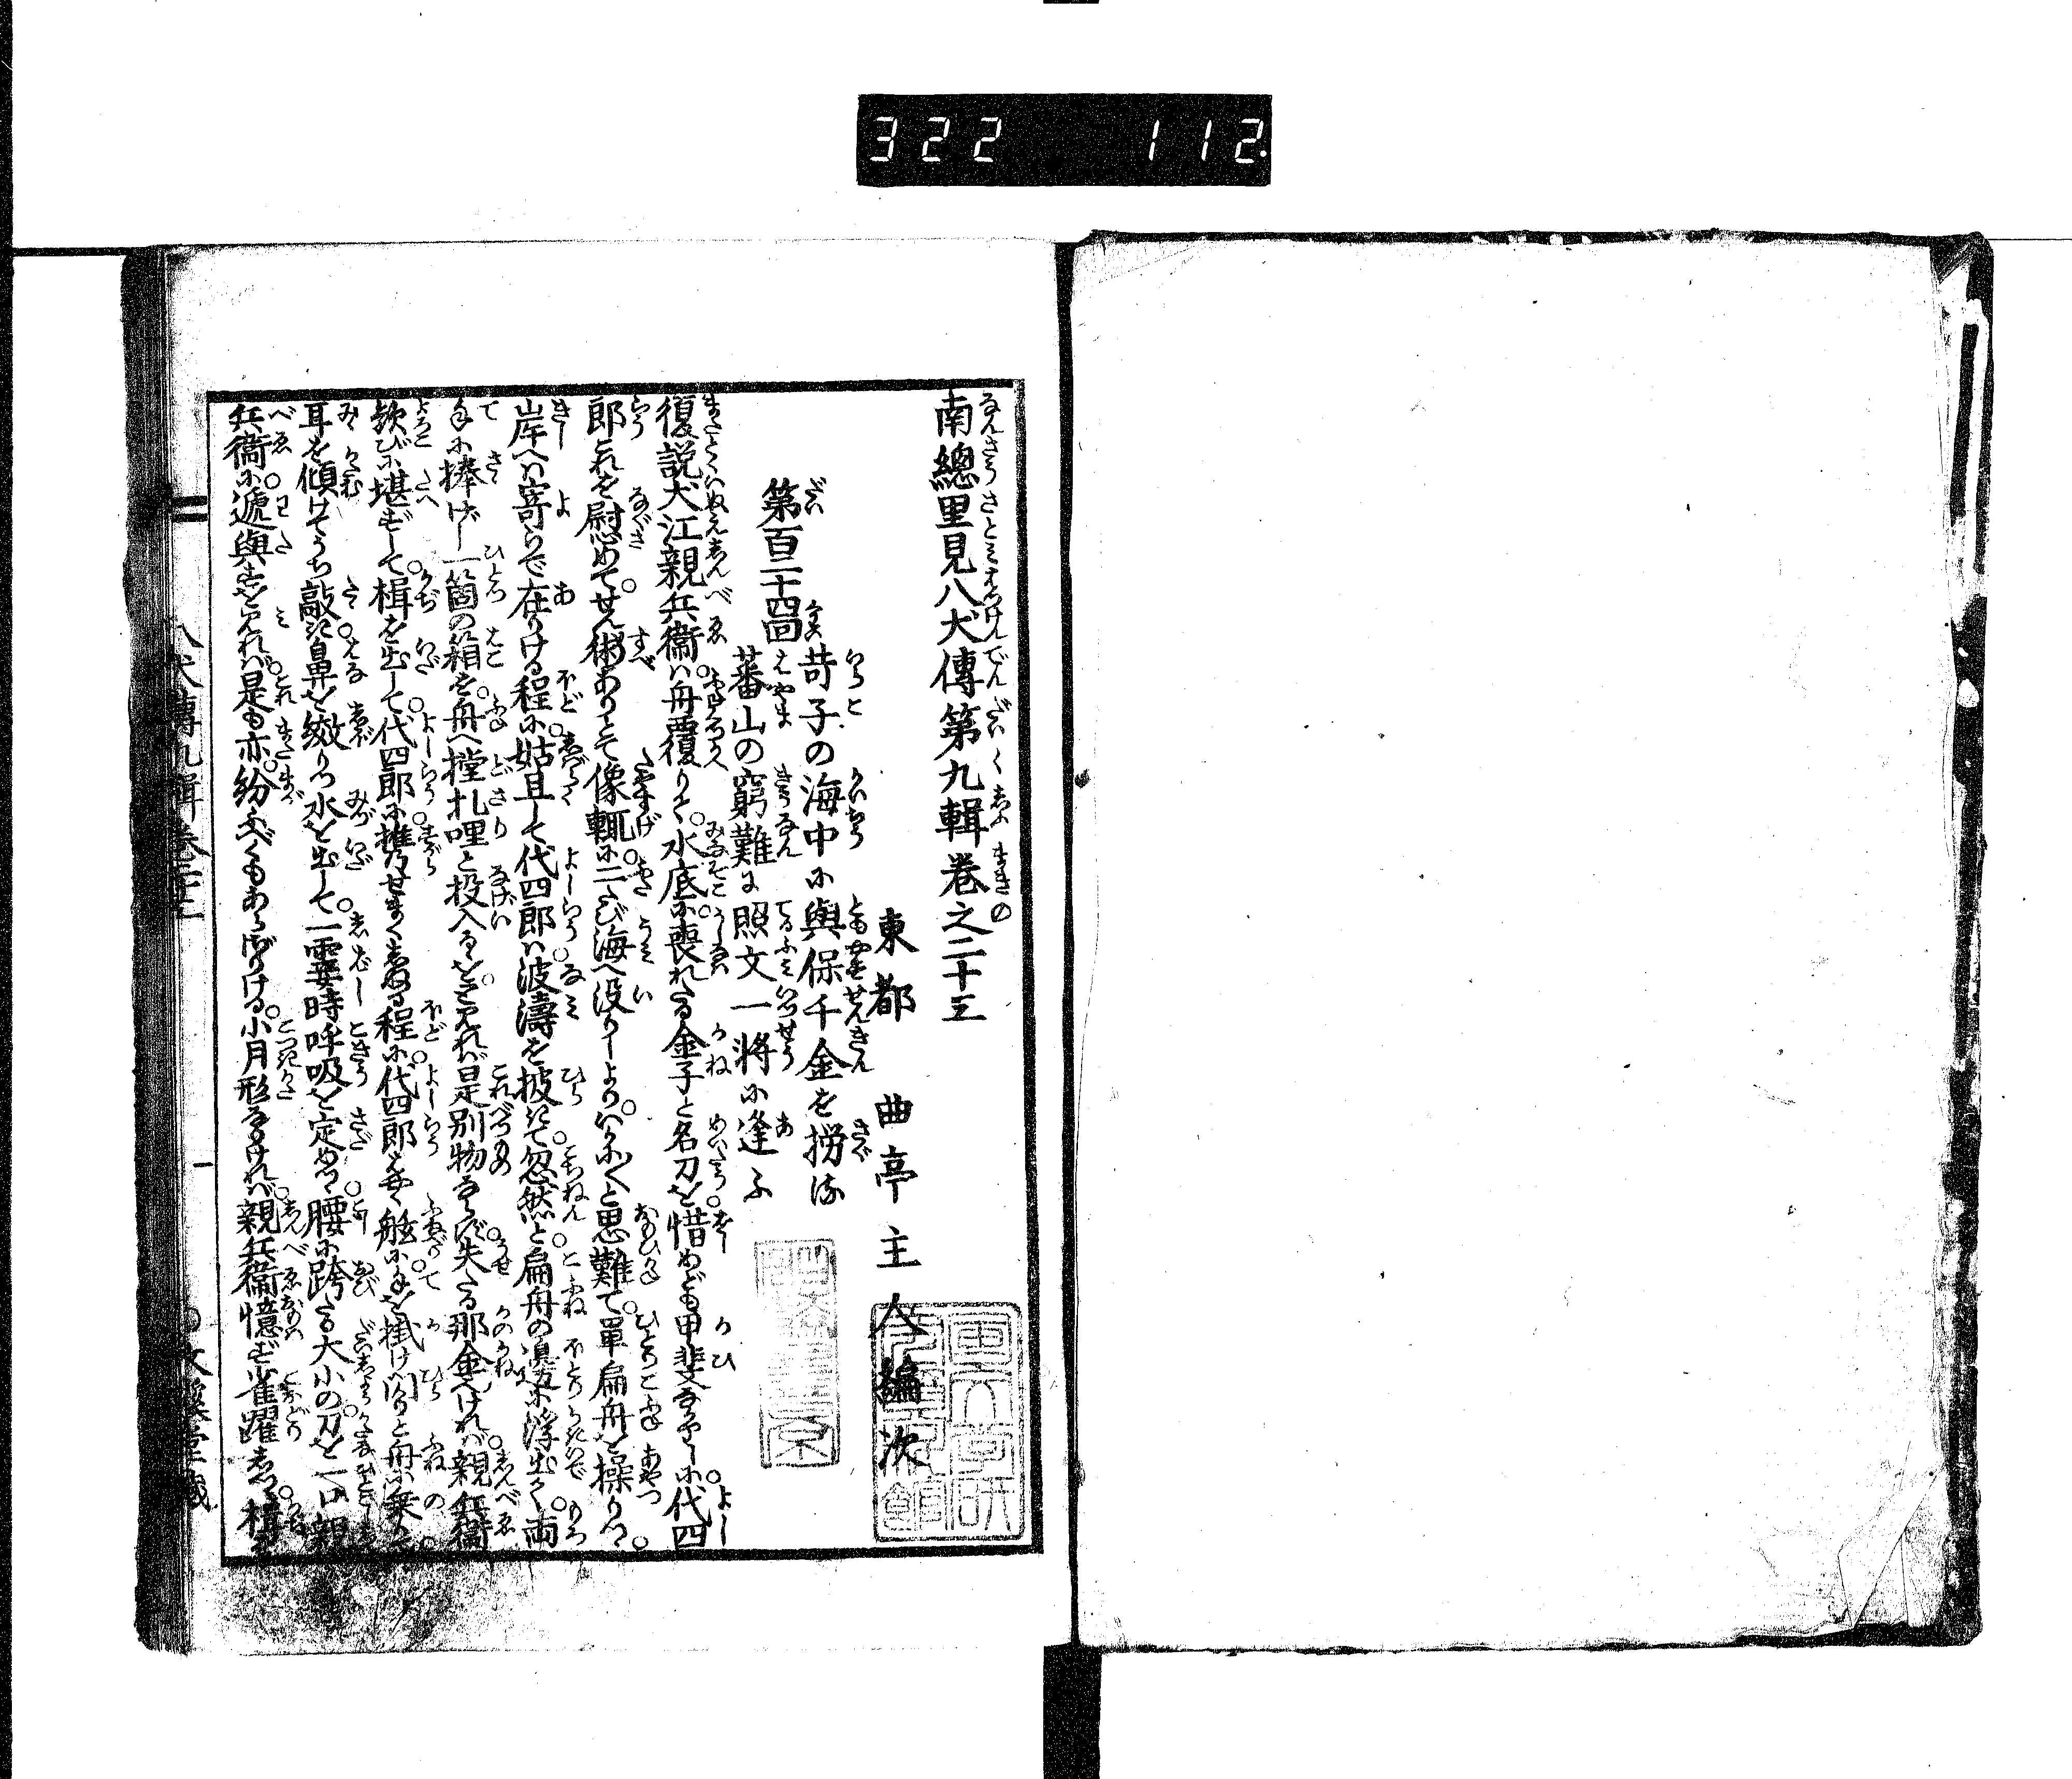 322 112
南總里見八犬傳第九輯卷之二十三
東都 曲亭主人編次
第百三十四回
苛子の海中に與保千金を撈る
蕃山の窮難に照文一將に逢ふ
復説犬江親兵衞ハ舟覆りて。水底に喪れたる金子と名刀を惜めども甲斐なかりしに。代四
郎これを慰めて。せん術ありとて像輒に。二たび海へ没りしより。いかに〳〵と思難て。單扁舟を操りつゝ。
岸へハ寄らで在りける程に。姑且して代四郎ハ。波濤を披きて忽然と。扁舟の邊に浮出て。両
手に捧げし一箇の箱を。舟へ撑扎哩と投入るゝを。と見れバ是別物ならず。失たる那金なれバ。親兵衞
歓びに堪ずして。楫を出して。代四郎に携らせまくしぬる程に。代四郎ははやく舷に。手を掛け閃りと舟に乗りて。
耳を傾けてうち敲き。鼻を緻りつ水を出して。一霎時呼吸を定めつゝ。腰に跨たる大小の刀を一口親
兵衞に。遞與すを見れバ。是も亦。紛ふべくもあらざりける。小月形なりけれバ。親兵衞憶ず雀躍しつゝ。楫を
八犬傳九輯卷二十三
一
文溪堂藏